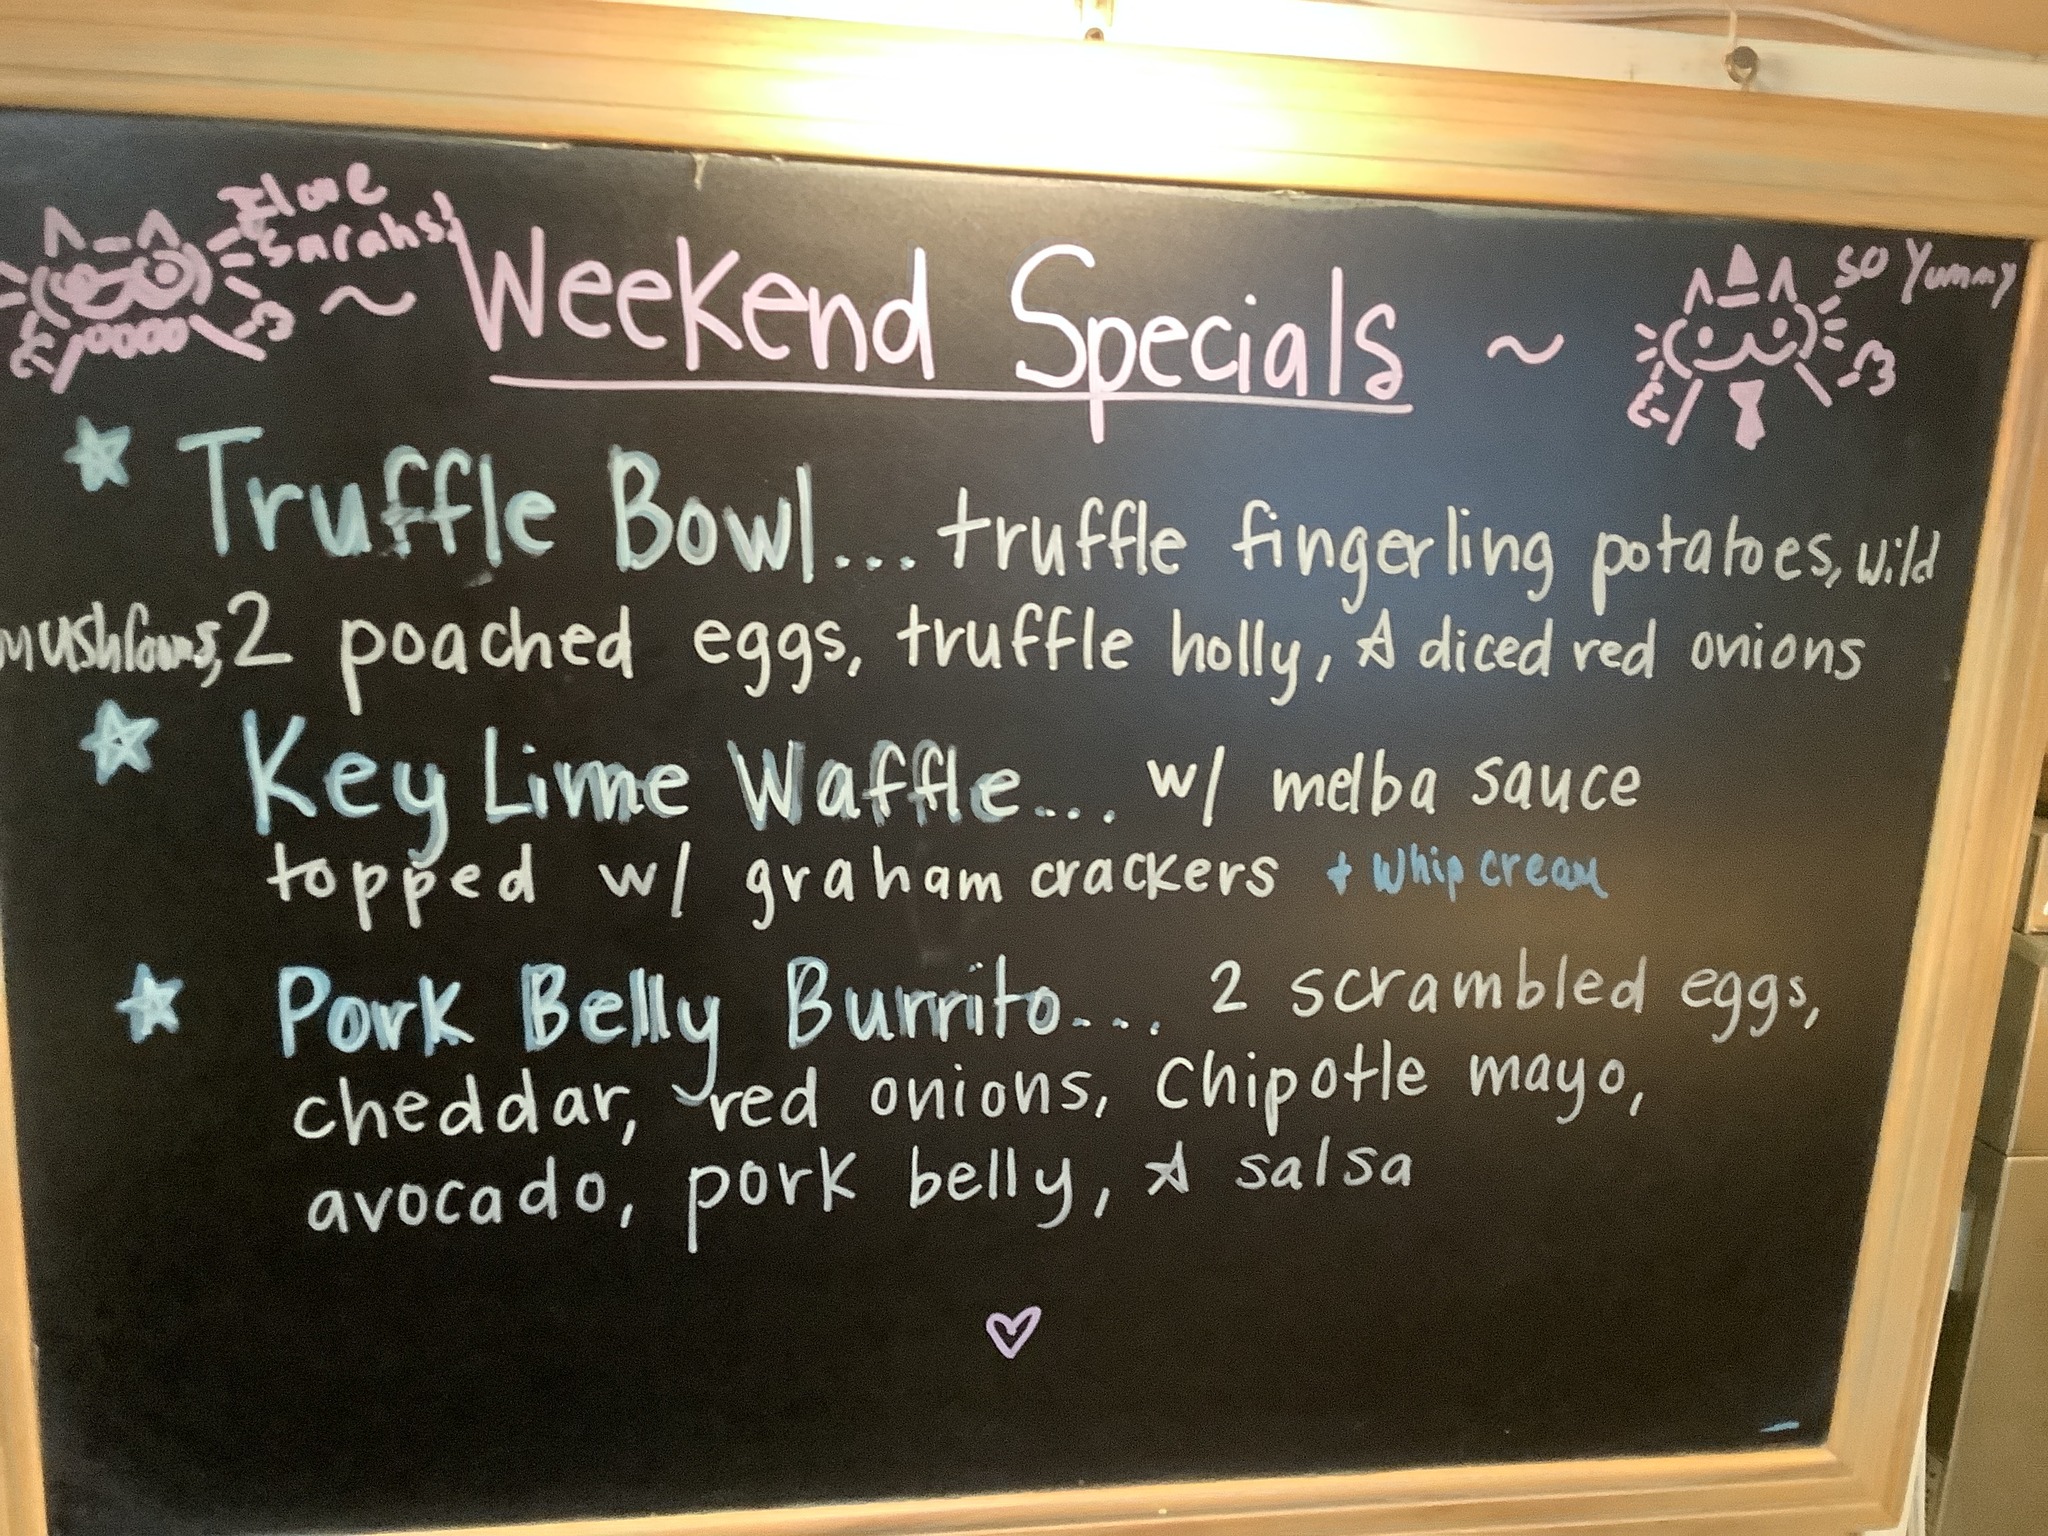 I love
Sarahs!
so Yummy
~ Weekend Specials ~
Truffle Bowl... truffle fingerling potatoes, wild
mushrooms, 2 poached eggs, truffle holly, & diced red onions
Key Lime Waffle... w/ melba sauce
topped w/ graham crackers + whip cream
Pork Belly Burrito... 2 scrambled eggs,
cheddar, red onions, chipotle mayo,
avocado, pork belly, & salsa